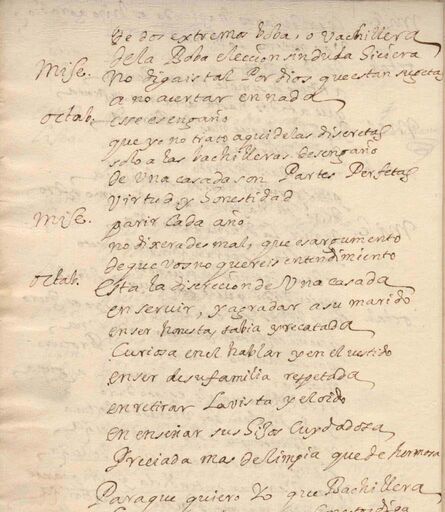 de dos extremos boba, o vachillera
de la Boba eleccion sin duda hiciera
Mise. No digais tal Por dios que estan sugetas
a no acertar en nada
octab. esse es engaño
que yo no trato aqui de las discretas
solo a las bachilleras desengaño
de Una casada son Partes Perfetas
Virtud y honestidad
Mise. parir Cada año
no dixerades mal, que es argumento
de que Vos no quereis entendimiento
octab. Esta la discreccion de Una casada
en seruir, y agradar a su marido
en ser honesta, sabia y recatada
Curiosa en el hablar y en el vestido
en ser de su familia respetada
en retirar La vista y el oido
en enseñar sus hijos Cuydadosa
Preciada mas de limpia que de hermosa
Para que quiero Yo que Bachillera